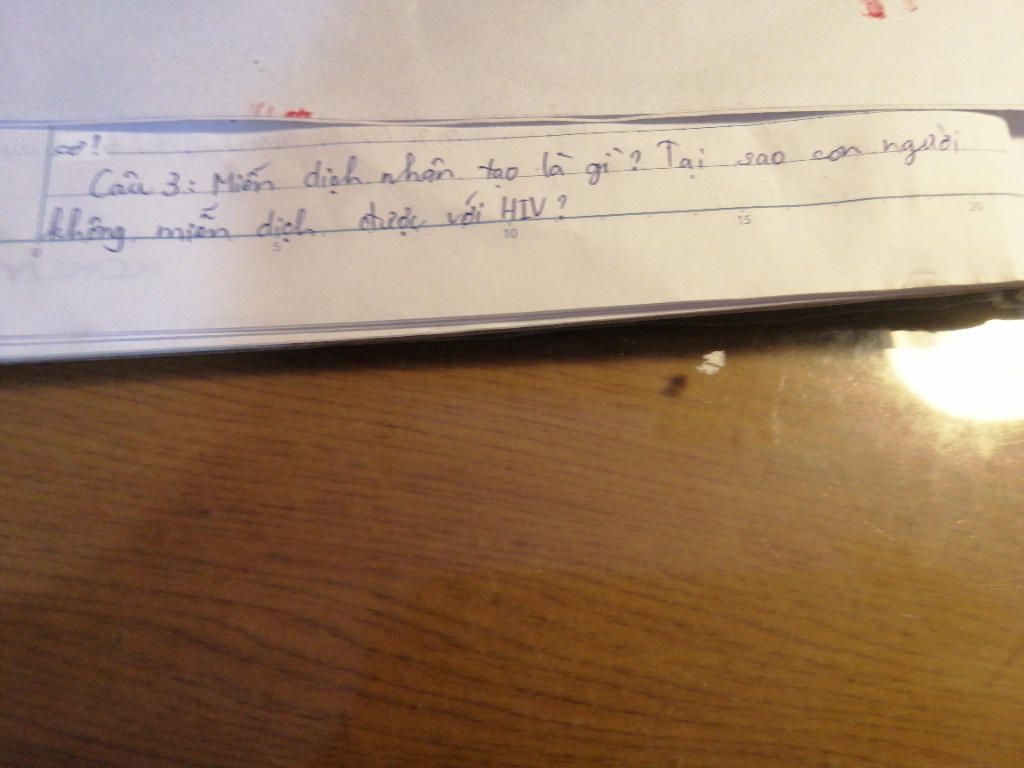 cơ!
Câu 3: Miễn dịch nhân tạo là gì? Tại sao con người
không miễn dịch được với HIV?
5 10 15 20